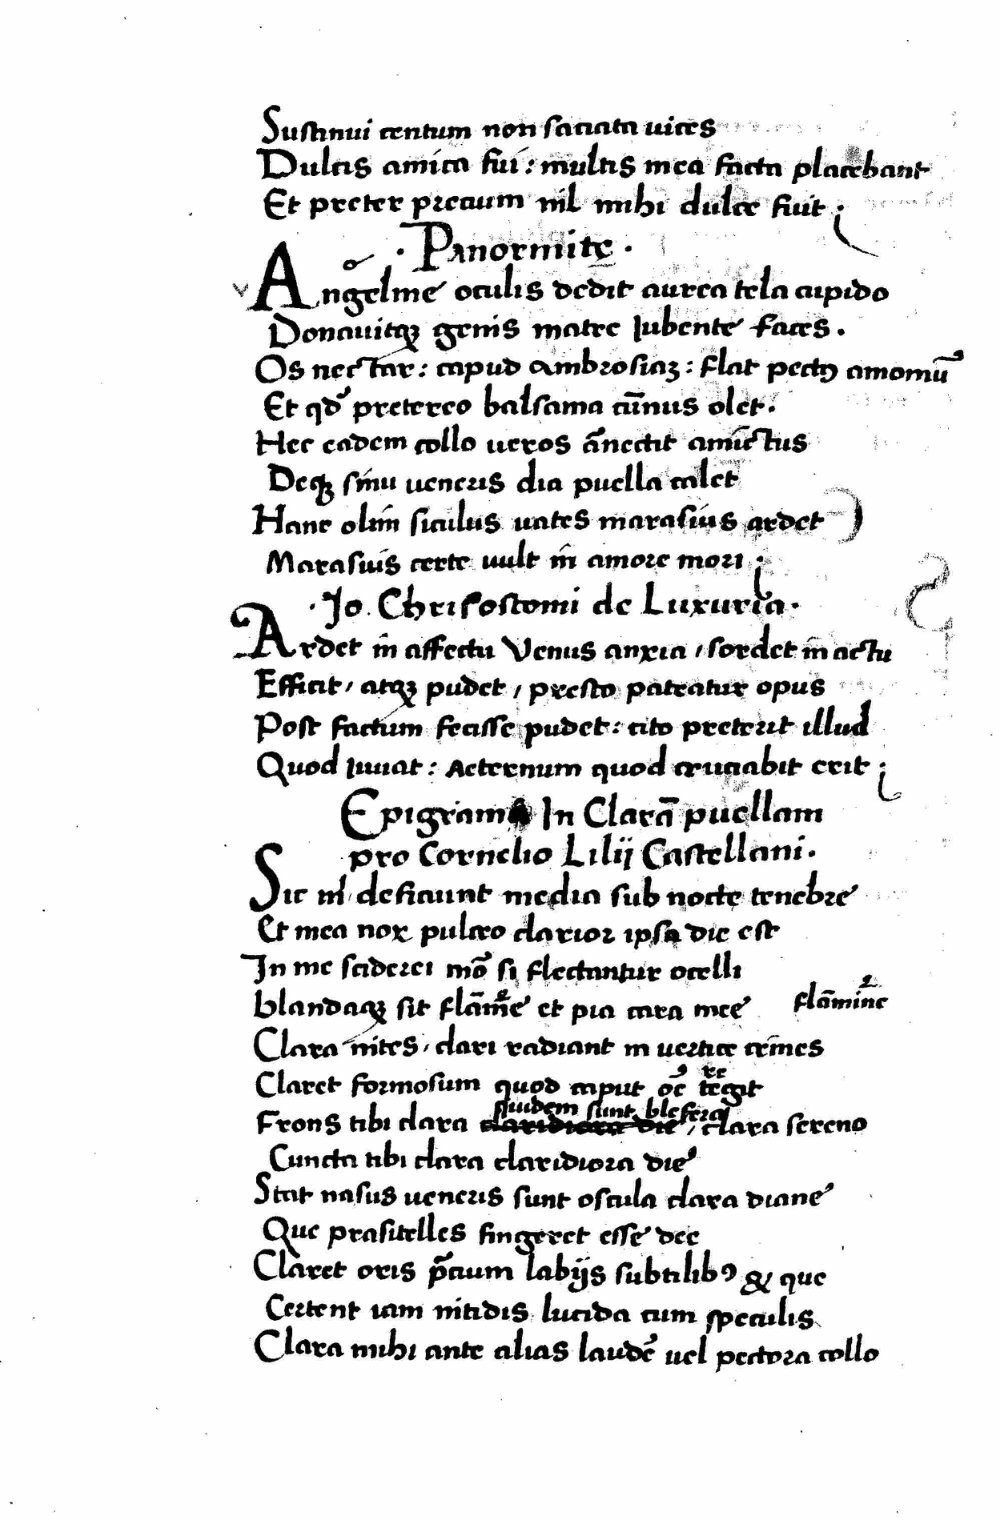 Sustinui centum non saciata uices
Dulcis amica fui: multis mea facta placebant
Et preter precium nil mihi dulce fuit;
· Panormite ·
Angelme oculis dedit aurea tela cupido
Donauitqꝫ genis matre Iubente faces.
Os nectar: capud ambrosiaꝫ: flat pectꝯ amomū
Et qđ pretereo balsama cūnus olet.
Hec eadem collo ueros ānectit amictus
Deqꝫ sinu ueneris dia puella calet
Hanc olim siculus uates marasius ardet
Marasius certe uult in amore mori;
· Jo. Chrisostomi de Luxuria ·
Ardet in affectu Venus anxia / sordet in actu
Efficit / atqꝫ pudet / presto patratur opus
Post factum fecisse pudet: cito preterit illud
Quod Iuuat: Aeternum quod cruciabit erit;
Epigrama In Clarā puellam
pro Cornelio Lilij Castellani.
Sic deficiunt media sub nocte tenebre
Et mea nox pulcro clarior ipsa die est
In me siderei mō si flectantur ocelli
blandaqꝫ sit flāme et pia cara mee flāmine
Clara nites / clari radiant in uertice crines
Claret formosum quod caput oē tegit re
quidem sunt blefera
Frons tibi clara claridiora die / clara sereno
Cuncta tibi clara claridiora die
Stat nasus ueneris sunt oscula clara diane
Que prasitelles fingeret esse dee
Claret oris p̄cium labijs subtilibꝯ & que
Certent iam nitidis lucida cum speculis
Clara mihi ante alias laudē uel pectora collo